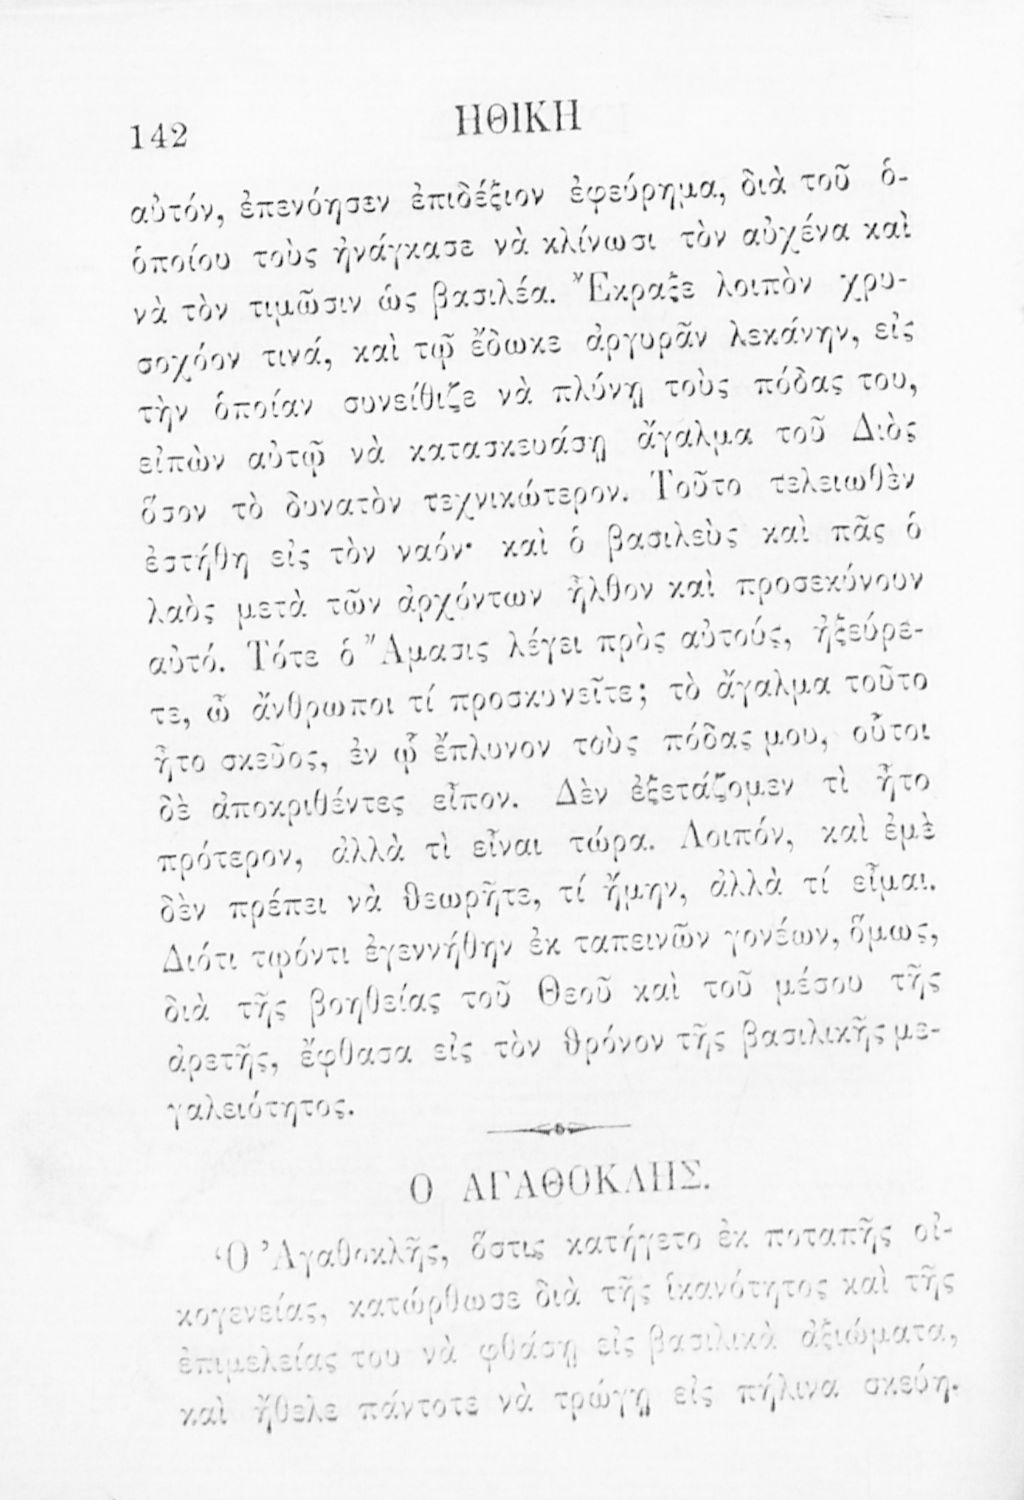 142
ΗΘΙΚΗ
αὐτόν, ἐπενόησεν ἐπιδέξιον ἐφεύρημα, διὰ τοῦ ὁ-
ὁποίου τοὺς ἠνάγκασε νὰ κλίνωσι τὸν αὐχένα καὶ
νὰ τὸν τιμῶσιν ὡς βασιλέα. Ἔκραξε λοιπὸν χρυ-
σοχόον τινά, καὶ τῷ ἔδωκε ἀργυρᾶν λεκάνην, εἰς
τὴν ὁποίαν συνείθιζε νὰ πλύνῃ τοὺς πόδας του,
εἰπὼν αὐτῷ νὰ κατασκευάσῃ ἄγαλμα τοῦ Διὸς
ὅσον τὸ δυνατὸν τεχνικώτερον. Τοῦτο τελειωθὲν
ἐστήθη εἰς τὸν ναόν· καὶ ὁ βασιλεὺς καὶ πᾶς ὁ
λαὸς μετὰ τῶν ἀρχόντων ἦλθον καὶ προσεκύνουν
αὐτό. Τότε ὁ Ἄμασις λέγει πρὸς αὐτούς, ἠξεύρε-
τε, ὦ ἄνθρωποι τί προσκυνεῖτε; τὸ ἄγαλμα τοῦτο
ἦτο σκεῦος, ἐν ᾧ ἔπλυνον τοὺς πόδας μου, οὗτοι
δὲ ἀποκριθέντες εἶπον. Δὲν ἐξετάζομεν τὶ ἦτο
πρότερον, ἀλλὰ τὶ εἶναι τώρα. Λοιπόν, καὶ ἐμὲ
δὲν πρέπει νὰ θεωρῆτε, τί ἤμην, ἀλλὰ τί εἶμαι.
Διότι τῳόντι ἐγεννήθην ἐκ ταπεινῶν γονέων, ὅμως,
διὰ τῆς βοηθείας τοῦ Θεοῦ καὶ τοῦ μέσου τῆς
ἀρετῆς, ἔφθασα εἰς τὸν θρόνον τῆς βασιλικῆς με-
γαλειότητος.
Ο ΑΓΑΘΟΚΛΗΣ.
Ὁ Ἀγαθοκλῆς, ὅστις κατήγετο ἐκ ποταπῆς οἰ-
κογενείας, κατώρθωσε διὰ τῆς ἱκανότητος καὶ τῆς
ἐπιμελείας του νὰ φθάσῃ εἰς βασιλικὰ ἀξιώματα,
καὶ ἤθελε πάντοτε νὰ τρώγῃ εἰς πήλινα σκεύη·